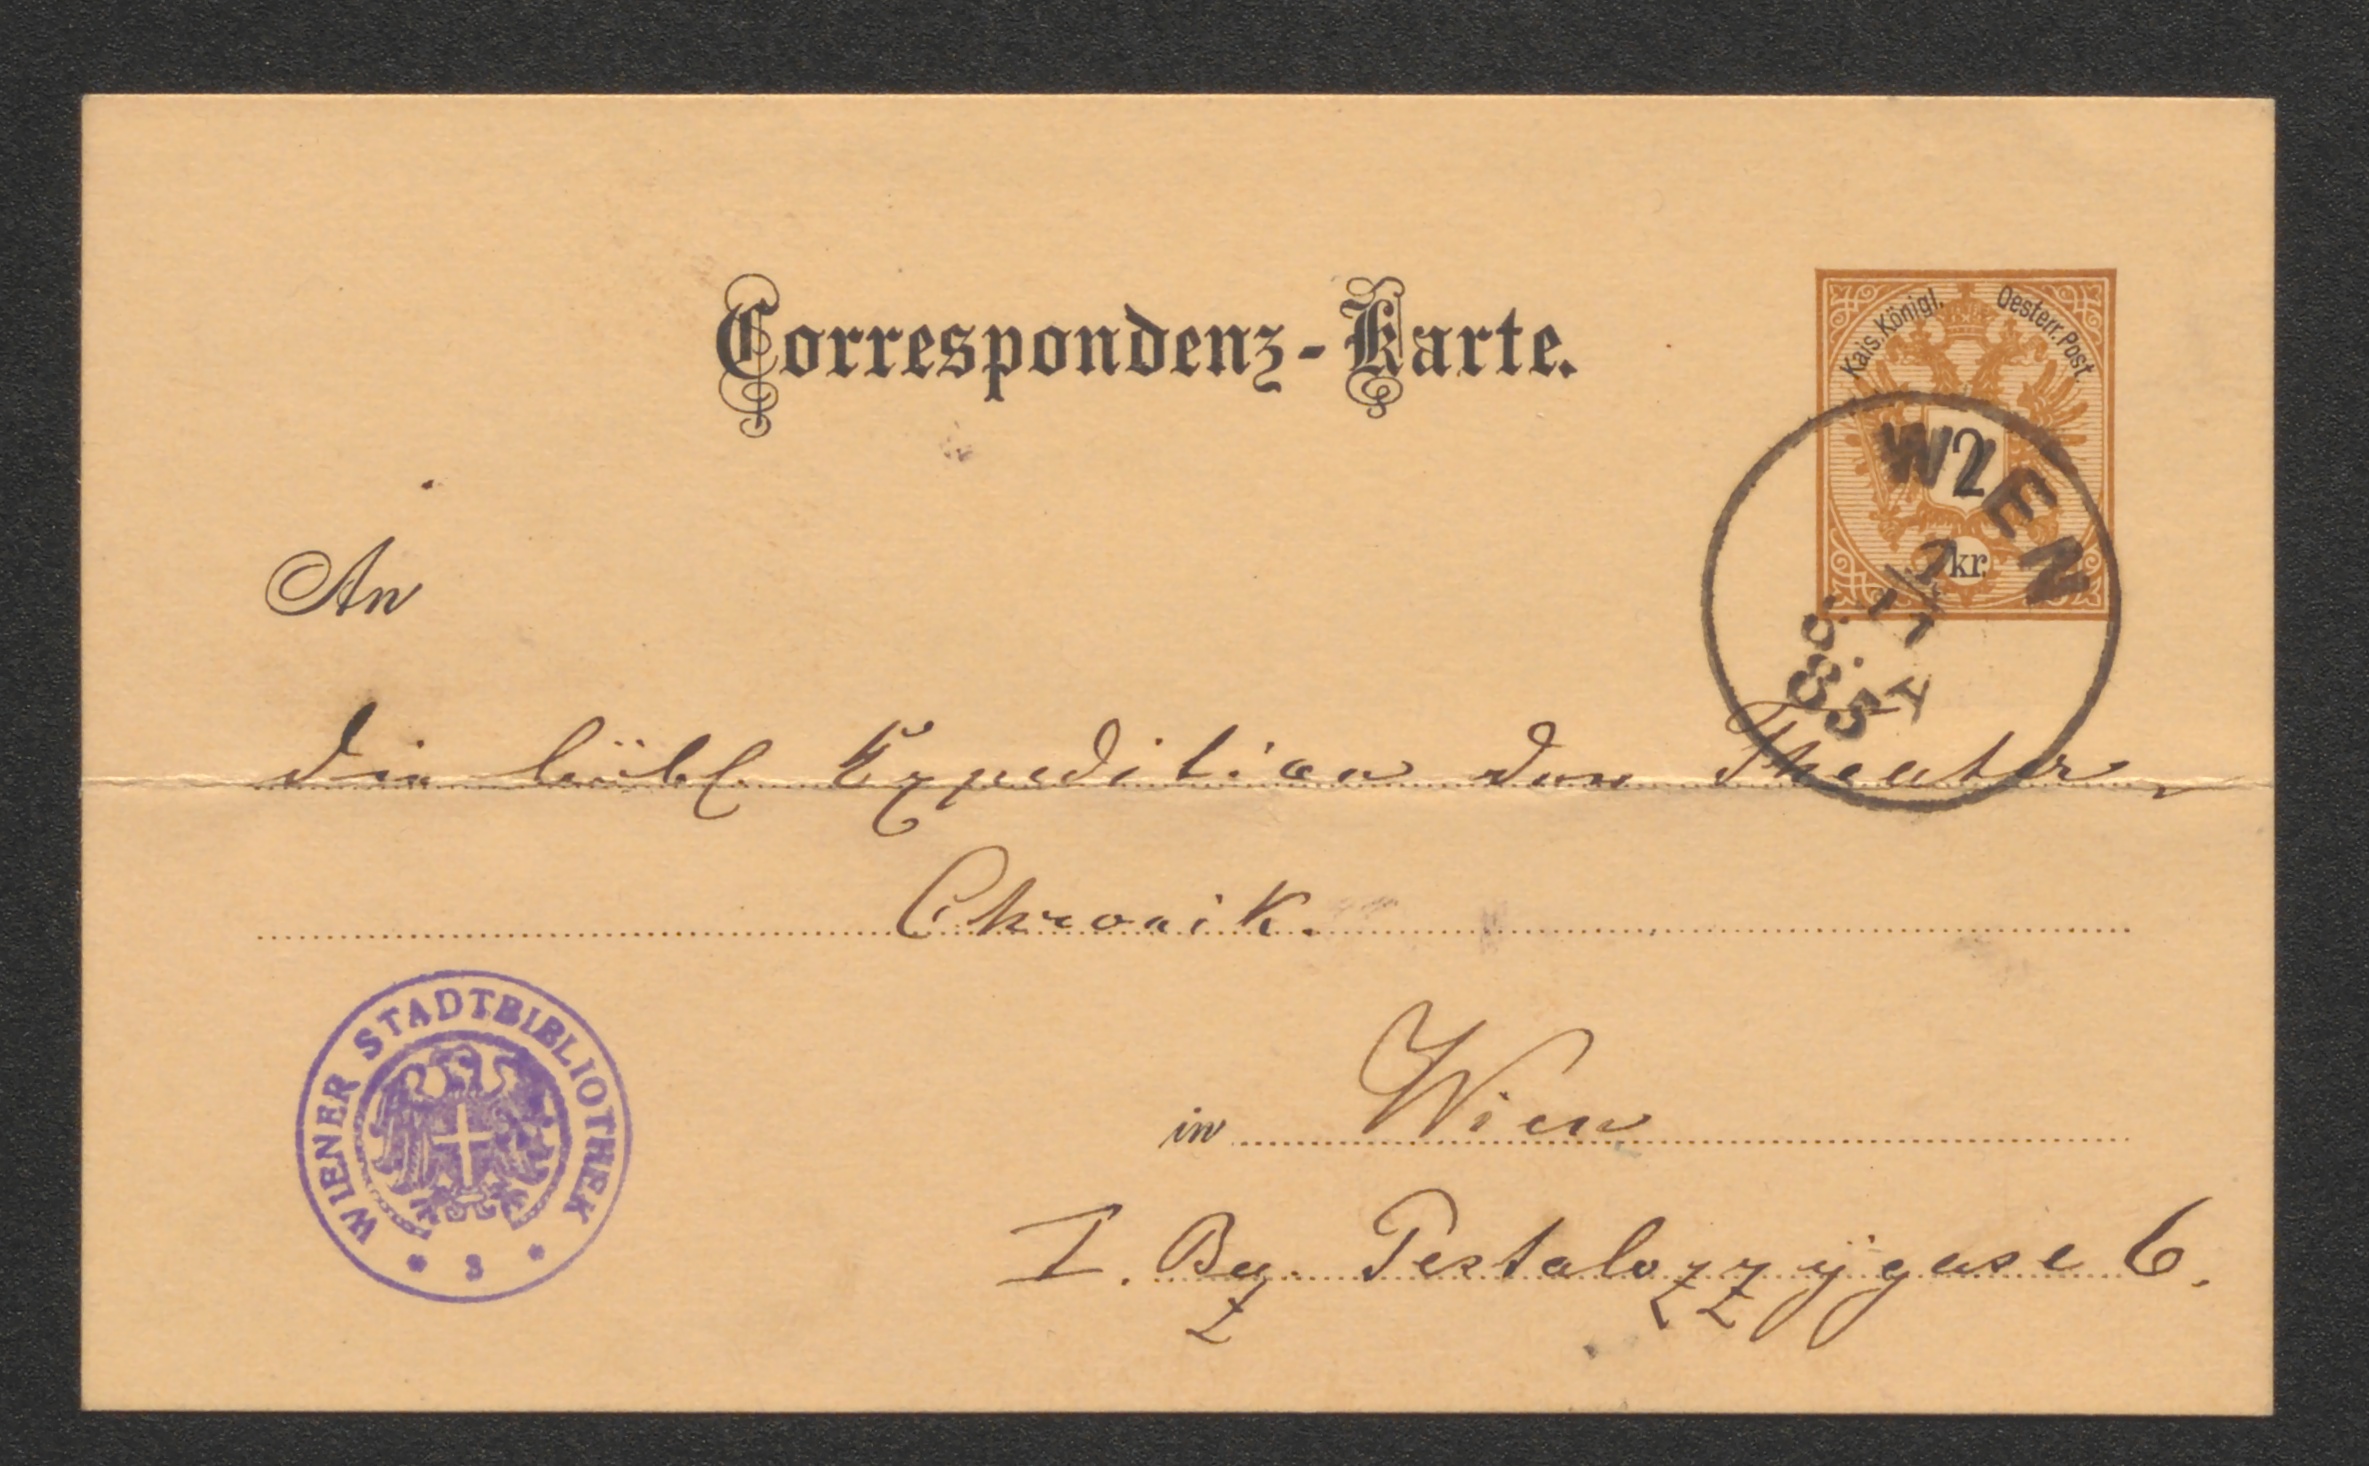 Correspondenz-Karte.
Kais. Königl. Oesterr. Post.
2
kr.
WIEN
85
An
die löbl. Expedition der Theater-
Chronik.
in Wien
I. Bez. Pestalozzygasse 6.
WIENER STADTBIBLIOTHEK